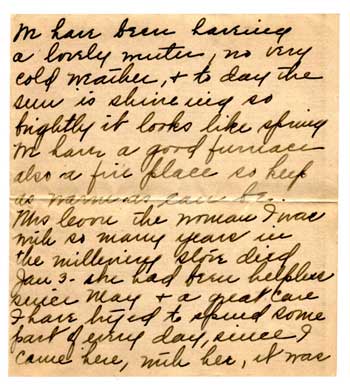 We have been haveing
a lovely winter, no very
cold weather, & to day the
sun is shineing so
brightly it looks like spring
We have a good furnace
also a fire place so keep
as warm as can be.
Mrs the woman I was
with so many years in
the millenery store died
Jan 3 - she had been helpless
since May & a great care
I have tryed to spend some
part of every day, since I
came here, with her, it was